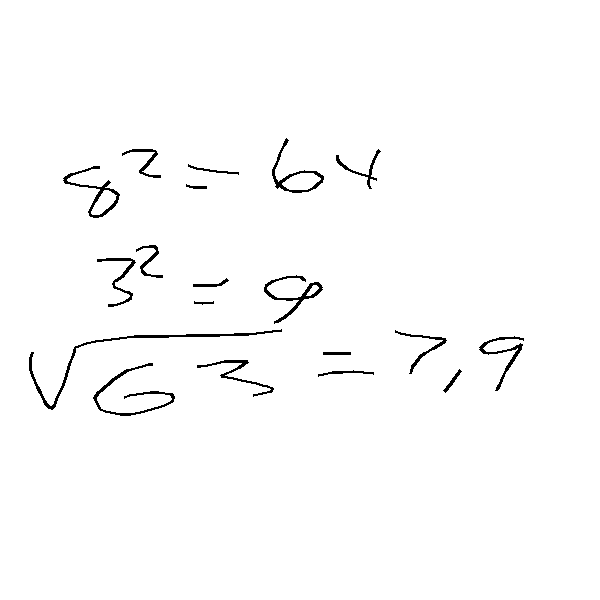 8² = 64
3² = 9
√63 = 7,9